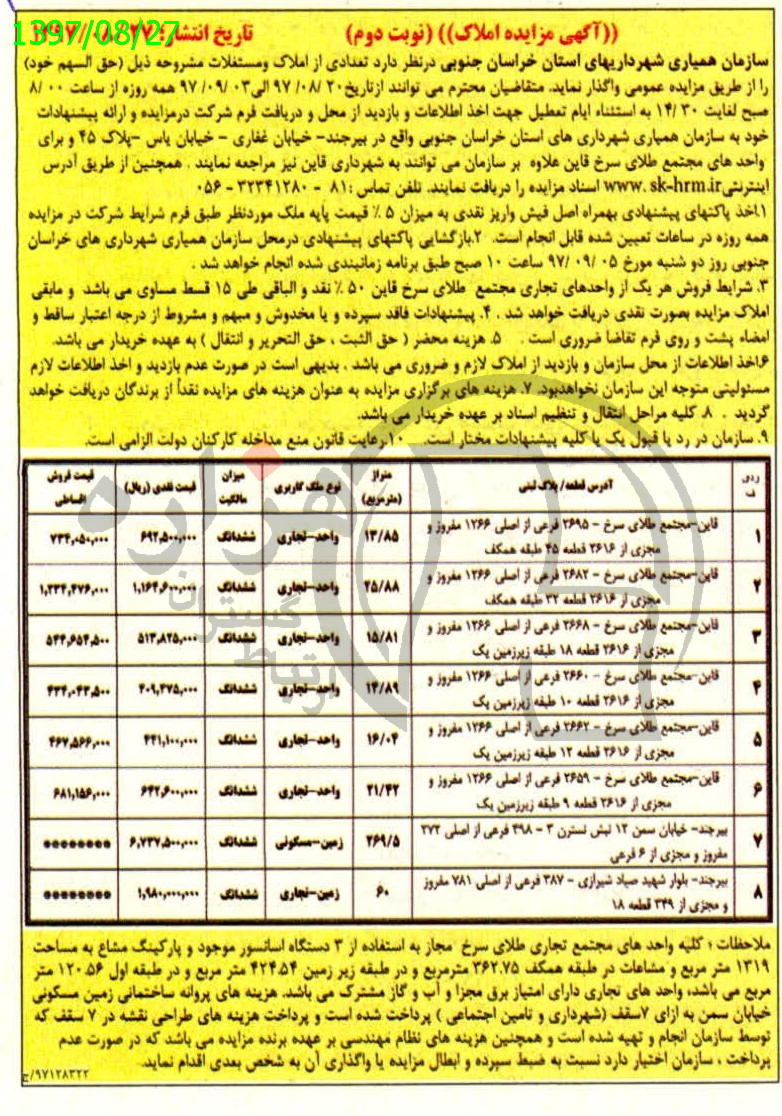 1397/08/27
((آگهی مزایده املاک)) (نوبت دوم) تاریخ انتشار: ۱۳۹۷/۰۸/۲۷
سازمان همیاری شهرداریهای استان خراسان جنوبی درنظر دارد تعدادی از املاک ومستغلات مشروحه ذیل (حق السهم خود)
را از طریق مزایده عمومی واگذار نماید. متقاضیان محترم می توانند ازتاریخ ۲۰ /۰۸/ ۹۷ الی ۰۳ /۰۹/ ۹۷ همه روزه از ساعت ۰۰ /۸
صبح لغایت ۳۰ /۱۴ به استثناء ایام تعطیل جهت اخذ اطلاعات و بازدید از محل و دریافت فرم شرکت درمزایده و ارائه پیشنهادات
خود به سازمان همیاری شهرداری های استان خراسان جنوبی واقع در بیرجند- خیابان غفاری - خیابان یاس -پلاک ۴۵ و برای
واحد های مجتمع طلای سرخ قاین علاوه بر سازمان می توانند به شهرداری قاین نیز مراجعه نمایند . همچنین از طریق آدرس
اینترنتی www. sk-hrm.ir اسناد مزایده را دریافت نمایند. تلفن تماس : ۸۱ - ۳۲۳۴۱۲۸۰ - ۰۵۶
۱.اخذ پاکتهای پیشنهادی بهمراه اصل فیش واریز نقدی به میزان ۵ ٪ قیمت پایه ملک موردنظر طبق فرم شرایط شرکت در مزایده
همه روزه در ساعات تعیین شده قابل انجام است. ۲.بازگشایی پاکتهای پیشنهادی درمحل سازمان همیاری شهرداری های خراسان
جنوبی روز دو شنبه مورخ ۰۵ /۰۹ /۹۷ ساعت ۱۰ صبح طبق برنامه زمانبندی شده انجام خواهد شد .
۳. شرایط فروش هر یک از واحدهای تجاری مجتمع طلای سرخ قاین ۵۰ ٪ نقد و الباقی طی ۱۵ قسط مساوی می باشد و مابقی
املاک مزایده بصورت نقدی دریافت خواهد شد . ۴. پیشنهادات فاقد سپرده و یا مخدوش و مبهم و مشروط از درجه اعتبار ساقط و
امضاء پشت و روی فرم تقاضا ضروری است . ۵. هزینه محضر ( حق الثبت ، حق التحریر و انتقال ) به عهده خریدار می باشد.
۶.اخذ اطلاعات از محل سازمان و بازدید از املاک لازم و ضروری می باشد . بدیهی است در صورت عدم بازدید و اخذ اطلاعات لازم
مسئولیتی متوجه این سازمان نخواهدبود. ۷. هزینه های برگزاری مزایده به عنوان هزینه های مزایده نقداً از برندگان دریافت خواهد
گردید . ۸. کلیه مراحل انتقال و تنظیم اسناد بر عهده خریدار می باشد.
۹. سازمان در رد یا قبول یک یا کلیه پیشنهادات مختار است. ۱۰.رعایت قانون منع مداخله کارکنان دولت الزامی است.
ردیف آدرس قطعه/ پلاک ثبتی متراژ (مترمربع) نوع ملک کاربری میزان مالکیت قیمت نقدی (ریال) قیمت فروش اقساطی
۱ قاین-مجتمع طلای سرخ - ۲۶۹۵ فرعی از اصلی ۱۲۶۶ مفروز و ۱۳/۸۵ واحد-تجاری ششدانگ ۶۹۲,۵۰۰,۰۰۰ ۷۳۴,۰۵۰,۰۰۰
مجزی از ۲۶۱۶ قطعه ۴۵ طبقه همکف
۲ قاین-مجتمع طلای سرخ - ۲۶۸۲ فرعی از اصلی ۱۲۶۶ مفروز و ۲۵/۸۸ واحد-تجاری ششدانگ ۱,۱۶۴,۶۰۰,۰۰۰ ۱,۲۳۴,۴۷۶,۰۰۰
مجزی از ۲۶۱۶ قطعه ۳۲ طبقه همکف
۳ قاین-مجتمع طلای سرخ - ۲۶۶۸ فرعی از اصلی ۱۲۶۶ مفروز و ۱۵/۸۱ واحد-تجاری ششدانگ ۵۱۳,۸۲۵,۰۰۰ ۵۴۴,۶۵۴,۵۰۰
مجزی از ۲۶۱۶ قطعه ۱۸ طبقه زیرزمین یک
۴ قاین-مجتمع طلای سرخ - ۲۶۶۰ فرعی از اصلی ۱۲۶۶ مفروز و ۱۴/۸۹ واحد-تجاری ششدانگ ۴۰۹,۴۷۵,۰۰۰ ۴۳۴,۰۴۳,۵۰۰
مجزی از ۲۶۱۶ قطعه ۱۰ طبقه زیرزمین یک
۵ قاین-مجتمع طلای سرخ - ۲۶۶۲ فرعی از اصلی ۱۲۶۶ مفروز و ۱۶/۰۴ واحد-تجاری ششدانگ ۴۴۱,۱۰۰,۰۰۰ ۴۶۷,۵۶۶,۰۰۰
مجزی از ۲۶۱۶ قطعه ۱۲ طبقه زیرزمین یک
۶ قاین-مجتمع طلای سرخ - ۲۶۵۹ فرعی از اصلی ۱۲۶۶ مفروز و ۲۱/۴۲ واحد-تجاری ششدانگ ۶۴۲,۶۰۰,۰۰۰ ۶۸۱,۱۵۶,۰۰۰
مجزی از ۲۶۱۶ قطعه ۹ طبقه زیرزمین یک
۷ بیرجند- خیابان سمن ۱۲ نبش نسترن ۳ - ۴۹۸ فرعی از اصلی ۲۷۲ ۲۶۹/۵ زمین-مسکونی ششدانگ ۶,۷۳۷,۵۰۰,۰۰۰ ********
مفروز و مجزی از ۶ فرعی
۸ بیرجند- بلوار شهید صیاد شیرازی - ۳۸۷ فرعی از اصلی ۷۸۱ مفروز ۶۰ زمین-تجاری ششدانگ ۱,۹۸۰,۰۰۰,۰۰۰ ********
و مجزی از ۳۴۹ قطعه ۱۸
ملاحظات : کلیه واحد های مجتمع تجاری طلای سرخ مجاز به استفاده از ۳ دستگاه آسانسور موجود و پارکینگ مشاع به مساحت
۱۳۱۹ متر مربع و مشاعات در طبقه همکف ۳۶۲.۷۵ مترمربع و در طبقه زیر زمین ۴۲۴.۵۴ متر مربع و در طبقه اول ۱۲۰.۵۶ متر
مربع می باشد، واحد های تجاری دارای امتیاز برق مجزا و آب و گاز مشترک می باشد. هزینه های پروانه ساختمانی زمین مسکونی
خیابان سمن به ازای ۷سقف (شهرداری و تامین اجتماعی ) پرداخت شده است و پرداخت هزینه های طراحی نقشه در ۷ سقف که
توسط سازمان انجام و تهیه شده است و همچنین هزینه های نظام مهندسی بر عهده برنده مزایده می باشد که در صورت عدم
پرداخت ، سازمان اختیار دارد نسبت به ضبط سپرده و ابطال مزایده یا واگذاری آن به شخص بعدی اقدام نماید.
۹۷۱۲۸۳۲۲/خ
هزاره
گستران
ارتباط